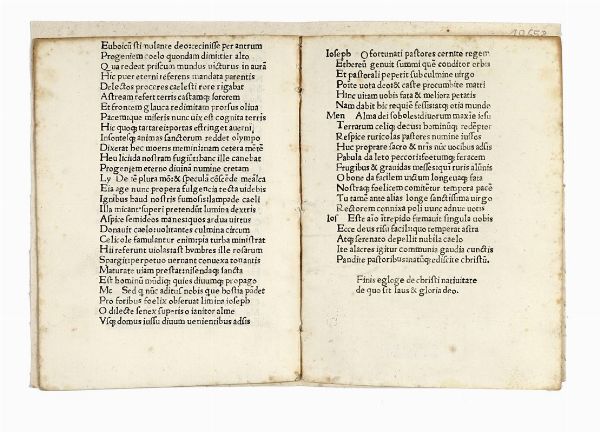 Euboicũ sti nulante deo: cecinisse per antrum
Progeniem coelo quondam dimitier alto
Qua redeat priscum mundus uicturus in aurũ
Hic puer eterni referens mandata parentis
Delectos proceres caelesti rore rigabat
Astream refert terris castamq; sororem
Et frontem glauca redimitam prorsus oliua
Pacemque miseris nunc uix est cognita terris
Hic quoq; tartarei portas estringet auerni
Insontesq; animas sanctorum reddet olympo
Dixerat hec moeris memini nam cetera mẽtẽ
Heu licida nostram fugiũt: hanc ille canebat
Progeniem eterno diuina numine cretam
Ly De iẽ plura mõ: & specula cõscẽde mealca
Eia age nunc propera fulgencia tecta uidebis
Ignibus haud nostris fumosis lampade caeli
Illa micant: superi pretendũt lumina dextris
Aspice semideos manesq; quos ardua uirtus
Donauit caelo: uolitantes culmina circum
Celicole famulantur enim: pia turba ministrat
Hi referunt uiolas: ast hymbres ille rosarum
Spargit: perpetuo uernant conuexa tonantis
Maturate uiam prestat: nisenda q; sancta
Est hominũ mũdiq; quies diuumq; propago
Me Sed q nũc aditus nobis que hostia pãdet
Pro foribus foelix obseruat limina ioseph
O dilecte senex superis o ianitor alme
Vsq; domus iussu diuum uenientibus adsis
10652
Ioseph O fortunati pastores cernite regem
Ethereũ genuit summi quẽ conditor orbis
Et pastorali peperit sub culmine uirgo
Poite uota deo: & caste procumbite matri
Hinc uitam uobis fata & meliora petatis
Nam dabit hic requiẽ fessis: atq; otia mundo
Men Alma dei soboles: diuerum maxie iesu
Terrarum celiq; decus: hominũq; redẽptor
Respice ruricolas pastores numine iusses
Huc proprare sacro & nr̃is nũc uocibus adsis
Pabula da leto peccori: foetumq; feracem
Frugibus & grauidas messes: qui ruris alũnis
O bone da facilem uictum longeuaq; fata
Nostraq; foelicem comitẽtur tempora pacẽ
Tu tamẽ ante alias longe sanctissima uirgo
Rectorem connixa poli nunc adnue uotis
Ios Este aĩo itrepido firmauit singula uobis
Ecce deus risu facili: quo temperat astra
Atq; serenato depellit nubila caelo
Ite alacres igitur communia gaudia cunctis
Pandite pastoribus: natũq; ediscite christũ.
Finis egloge de christi natiuitate
de quo sit laus & gloria deo.